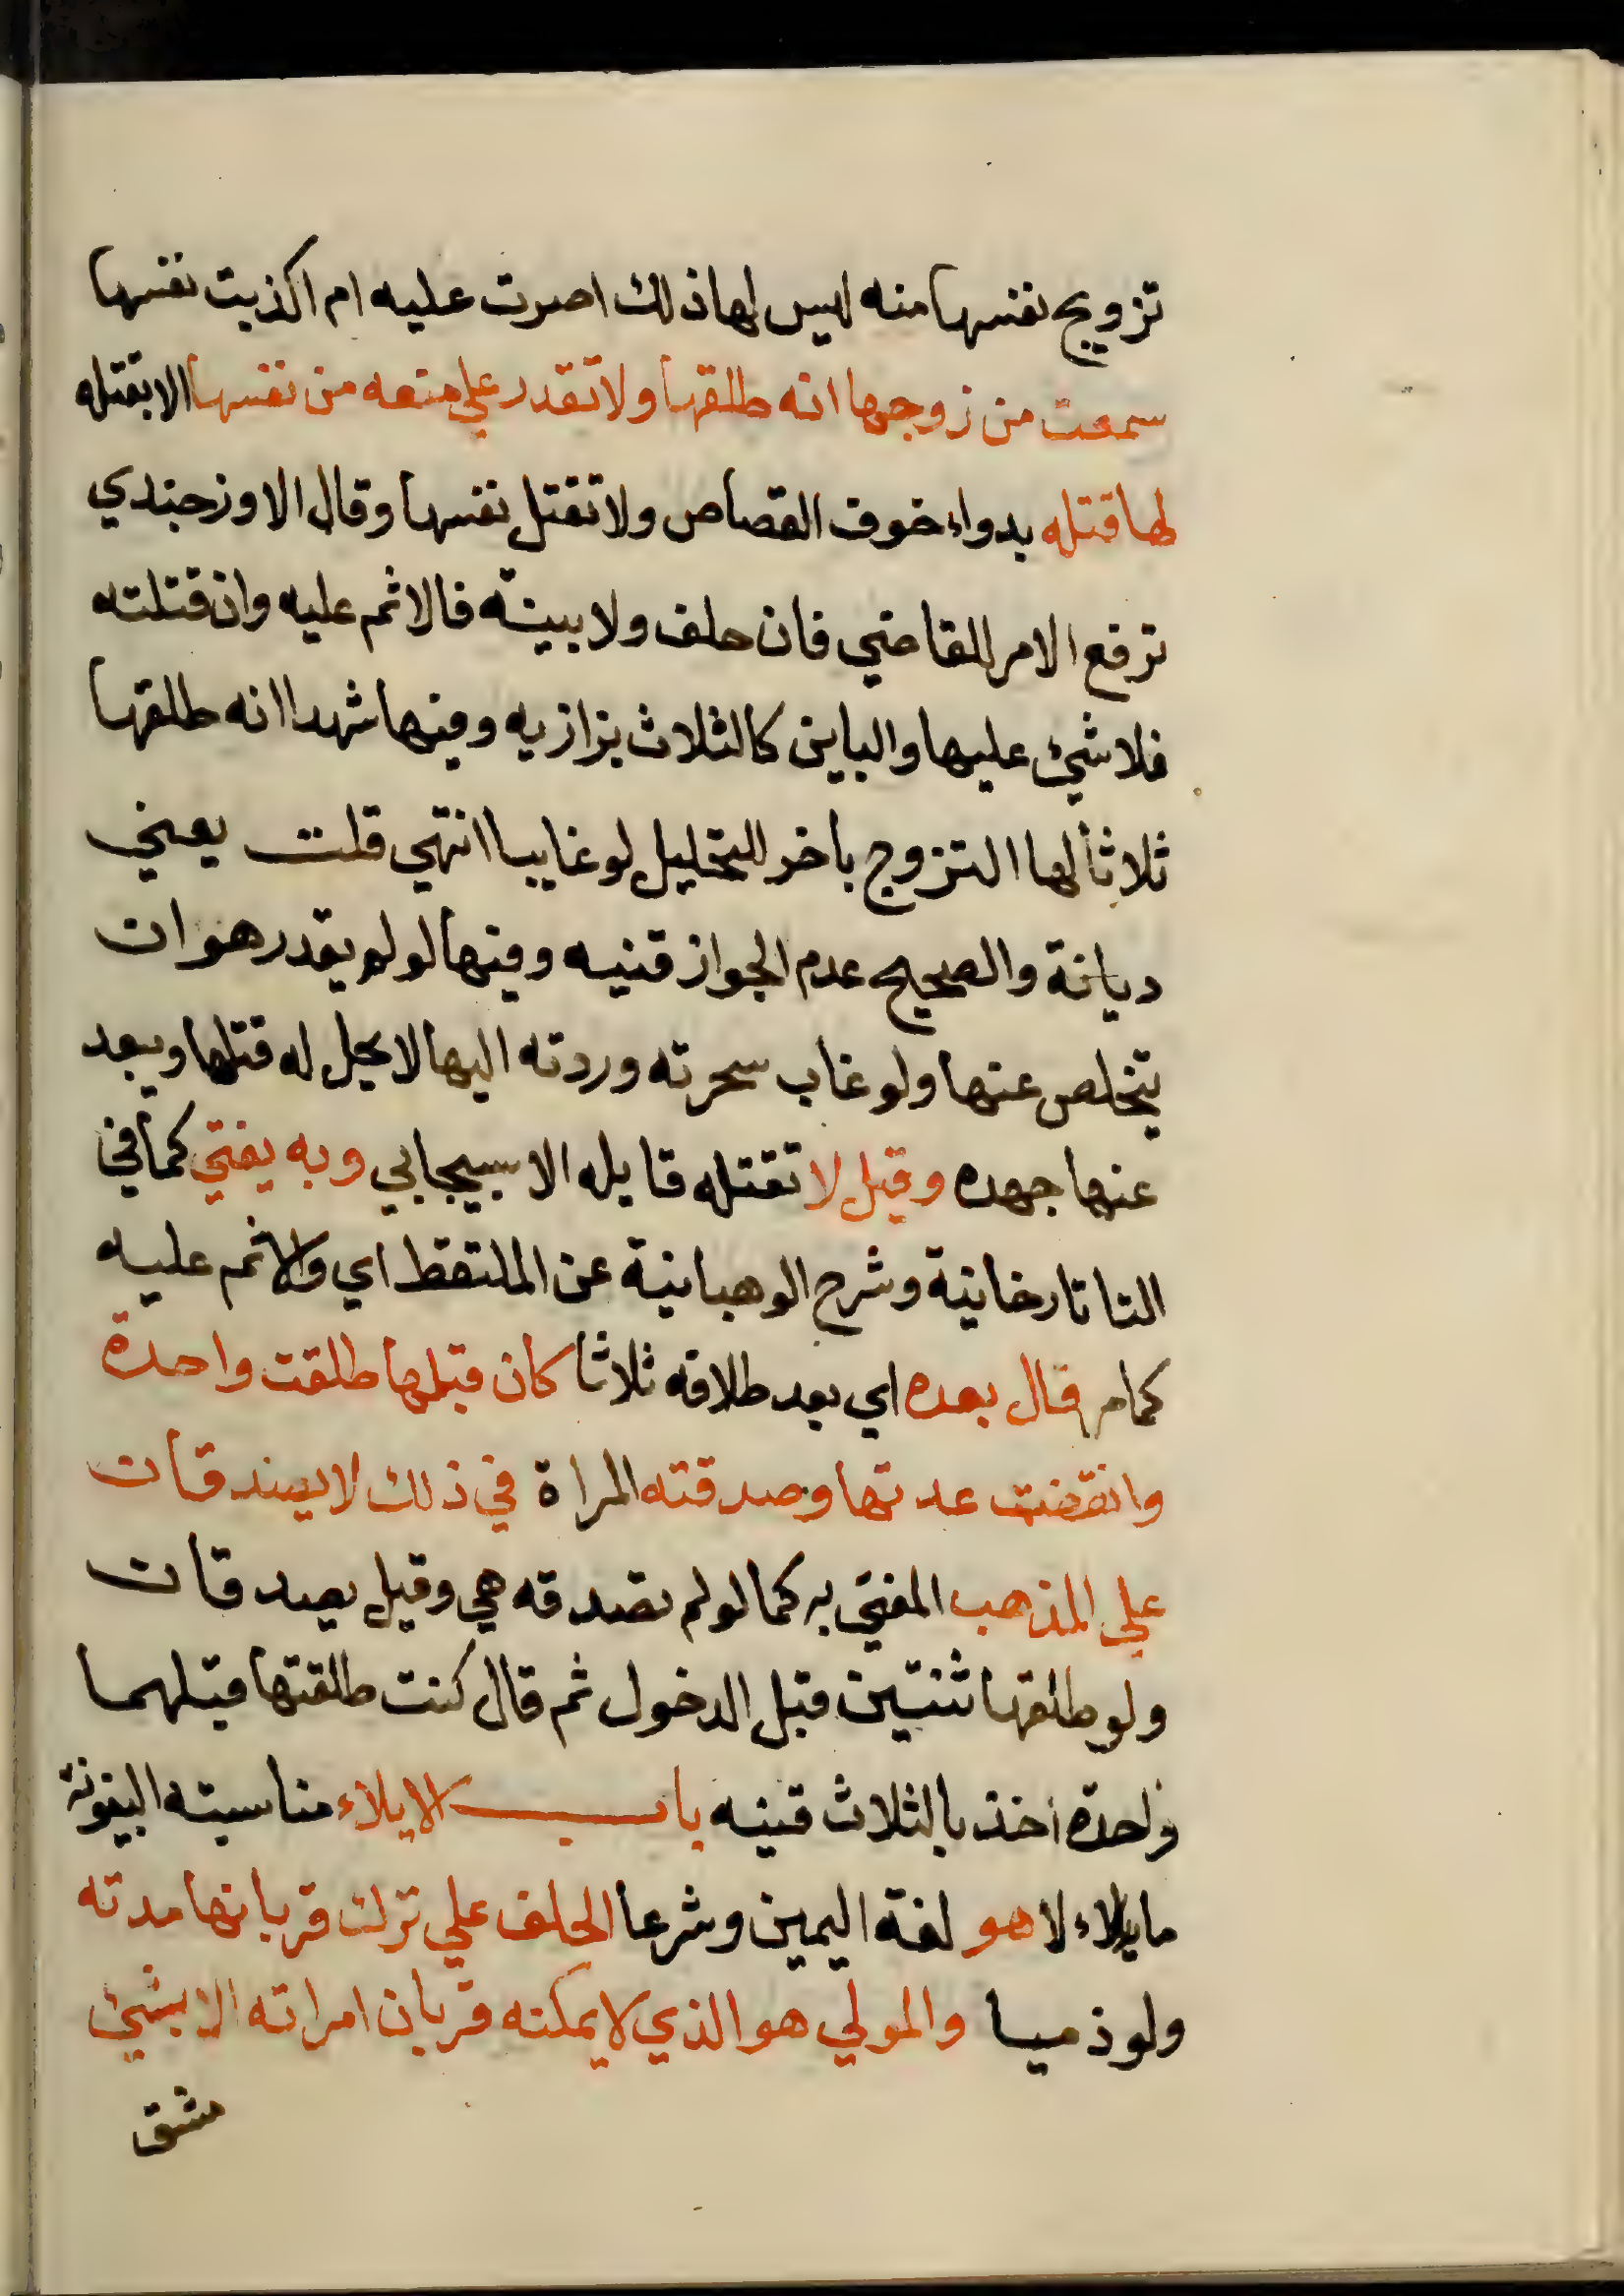 تزويج نفسها منه ليس لها ذلك اصرت عليه ام اكذبت نفسها
سمعت من زوجها انه طلقها ولا تقدر علي منعه من نفسها الا بقتله
لها قتله بدواء خوف القصاص ولا تقتل نفسها وقال الاوزجندي
ترفع الامر للقاضي فان حلف ولا بينة فالاثم عليه وان قتلته
فلا شئ عليها والباين كالثلاث بزازيه وفيها شهدا انه طلقها
ثلاثا لها التزوج باخر للتحليل لو غايبا انتهي قلت يعني
ديانة والصحيح عدم الجواز قنيه وفيها لو لم يقدر هو ان
يتخلص عنها ولو غاب سحرته وردته اليها لا يحل له قتلها ويبعد
عنها جهده وقيل لا تقتله قايله الاسبيجابي وبه يفتي كما في
التاتارخانية وشرح الوهبانية عن الملتقط اي والاثم عليه
كما مر قال بعده اي بعد طلاقه ثلاثا كان قبلها طلقت واحدة
وانقضت عدتها وصدقته المراة في ذلك لا يصدقان
علي المذهب المفتي به كما لو لم تصدقه هي وقيل يصدقان
ولو طلقها ثنتين قبل الدخول ثم قال كنت طلقتها قبلهما
واحدة اخذ بالثلاث قنيه باب الايلاء مناسبته البينونة
مايلاء لا هو لغة اليمين وشرعا الحلف علي ترك قربانها مدته
ولو ذميا والمولي هو الذي لا يمكنه قربان امراته الا بشئ
مشق